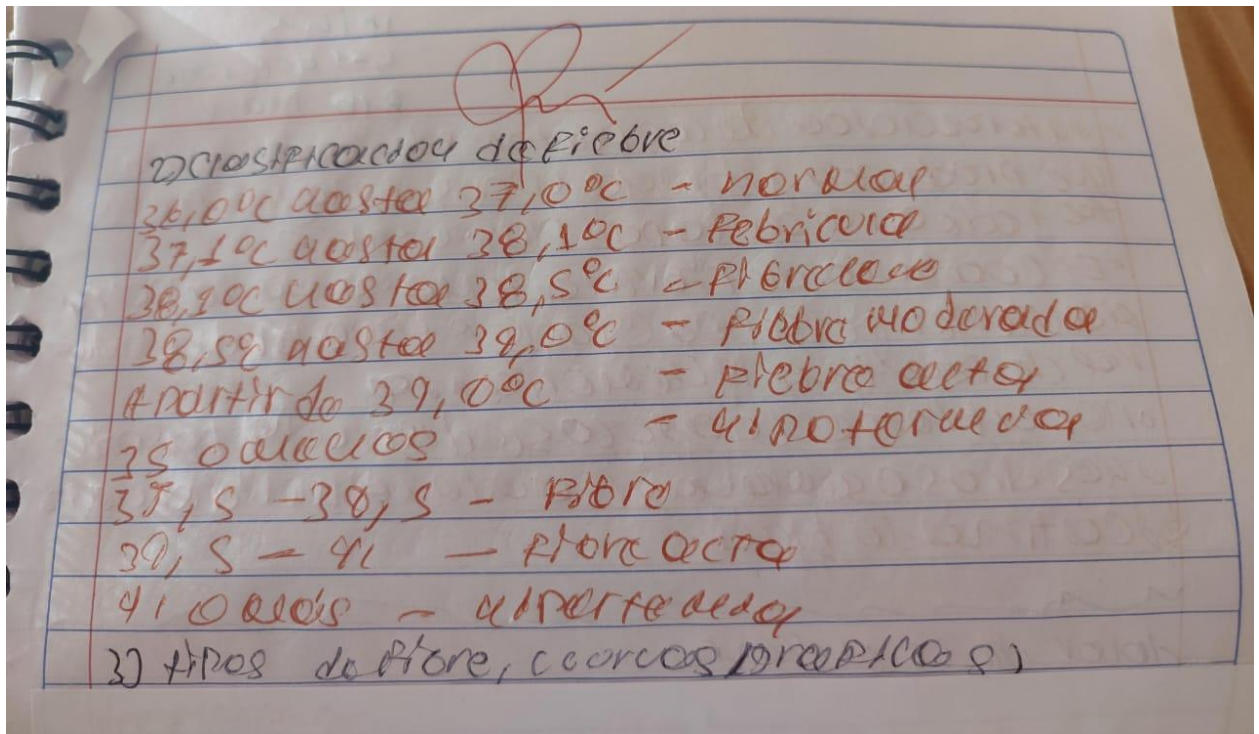 2) Clasificacion de fiebre
36,0°C hasta 37,0°C - normal
37,1°C hasta 38,1°C - Febricula
38,1°C hasta 38,5°C -
38,5°C hasta 39,0°C - fiebre moderada
A partir de 39,0°C - fiebre alta
35 o menos - hipotermia
37,5 - 38,5 - fibre
39,5 - 41 - fibre alta
41 o más - hipertermia
3) tipos de fibre, graficos)